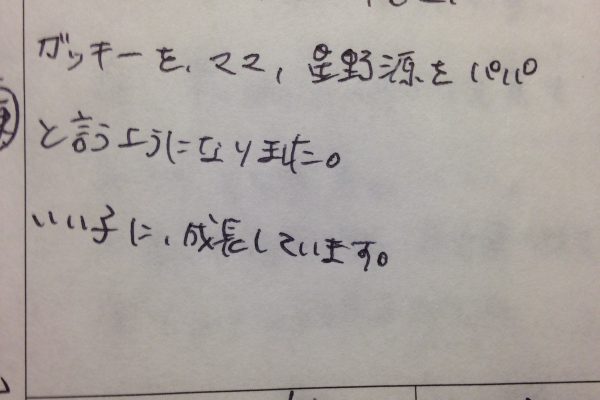 ガッキーを、ママ、星野源を パパ
と言うようになりました。
いい子に、成長しています。